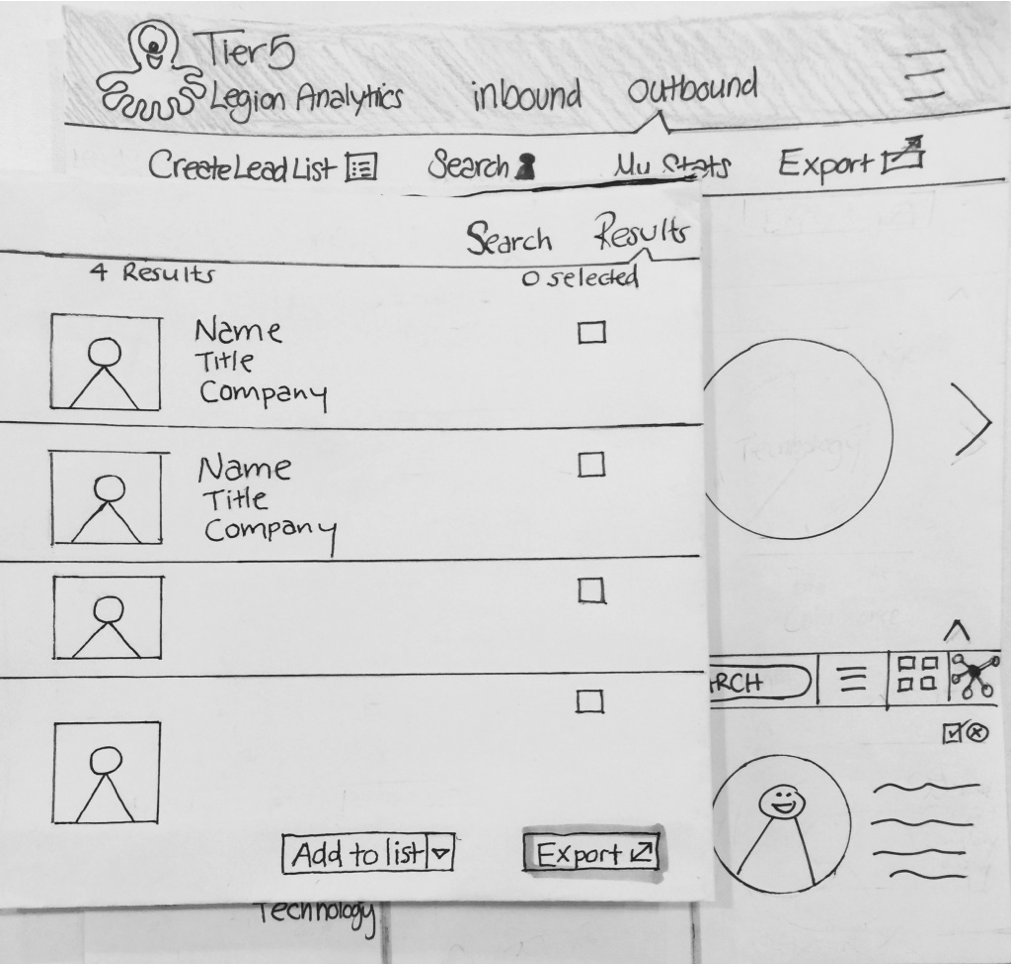 Tier5
Legion Analytics
inbound outbound
Create Lead List Search My Stats Export
Search Results
4 Results 0 selected
Name
Title
Company
Name
Title
Company
RCH
Add to list Export
Technology